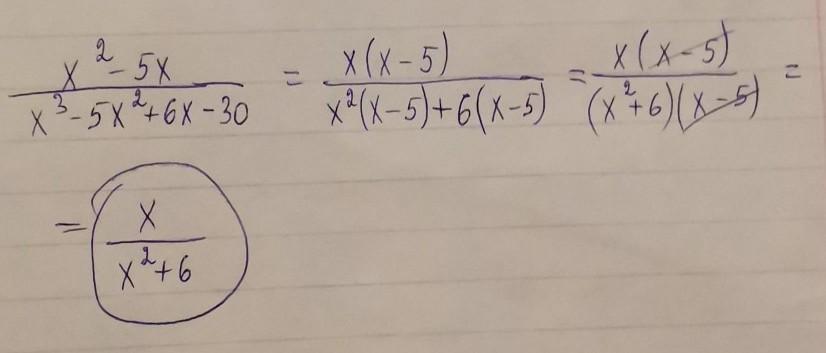 x²-5x / x³-5x²+6x-30 = x(x-5) / x²(x-5)+6(x-5) = x(x-5) / (x²+6)(x-5) =
= x / x²+6